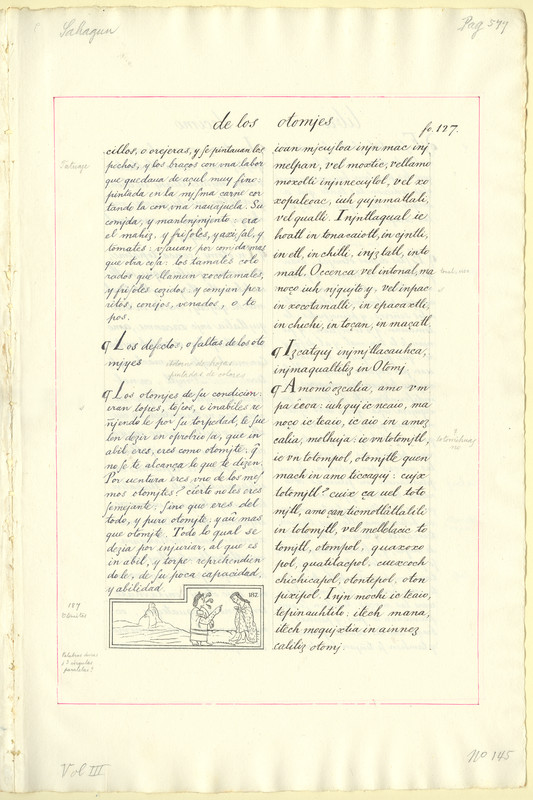 Sahagun
Pag 577
de los otomjes
fo. 127.
cillos, o orejeras, y se pintauan los
pechos, y los braços con vna labor
que quedaua de açul muy fino:
pintada en la mysma carne cor
tando la con vna nauajuela. Su
comjda, y mantenjmjento: era
el mahiz, y frisoles, y axi, sal, y
tomates: vsauan por comjda mas
que otra cosa: los tamales colo
rados que llaman xocotamales,
y frisoles cozidos, y comjan per
ritos, conejos, venados, o to
pos.
Los defectos, o faltas de los oto
mjyes
Los otomjes de su condicion:
eran torpes, toscos, e inabiles re
njendo le por su torpedad, le sue
len dezir en oprobrio: sa, que in
abil eres, eres como otomjte, q̃
no se te alcança lo que te dizen,
Por uentura eres vno de los mes
mos otomjtes? cierto no les eres
semejante; sino que eres del
todo, y puro otomjte, y aũ mas
que otomjte. Todo lo qual se
dezia por injuriar, al que es
in abil, y torpe: reprehendien
dole, de su poca capacidad,
y abiledad
ioan mjcujloa injn mac inj
melpan, vel moxtic, vellamo
moxolti injnnecujlol, vel xo
xopaleoac, iuh qujnmatlali,
vel qualli. Injntlaqual ie
hoatl in tonacaiotl, in cjntli,
in etl, in chilli, injztatl, in to
matl. Occenca vel intonal, ma
noço iuh njqujto y. vel inpac
in xocotamalli, in epaoaxtli
in chichi, in toçan, in maçatl,
Izcatquj injmjtlacauhca,
injmaqualtiliz in Otomj
Amomôozcalia, amo vm
pa êcoa: iuh quj ic neaio, ma
noço ic teaio, ic aio in amoz
calia, melhuja: ie vn totomjtl,
ie vn totompol, otomjtle quen
mach in amo ticcaquj: cujx
totomjtl? cuix ca uel toto
mjtl, amo çan ticmotlatlalili
in totomjtl, vel mellelacic to
tomjtl, otompol, quaxoxo
pol, quatilacpol, cuexcoch
chichicapol, otontepol, oton
pixipol. Injn mochi ic teaio,
tepinauhtilo: itech mana,
itech moqujxtia in aimoz
caliliz otomj.
182
157
Vol III
No 145